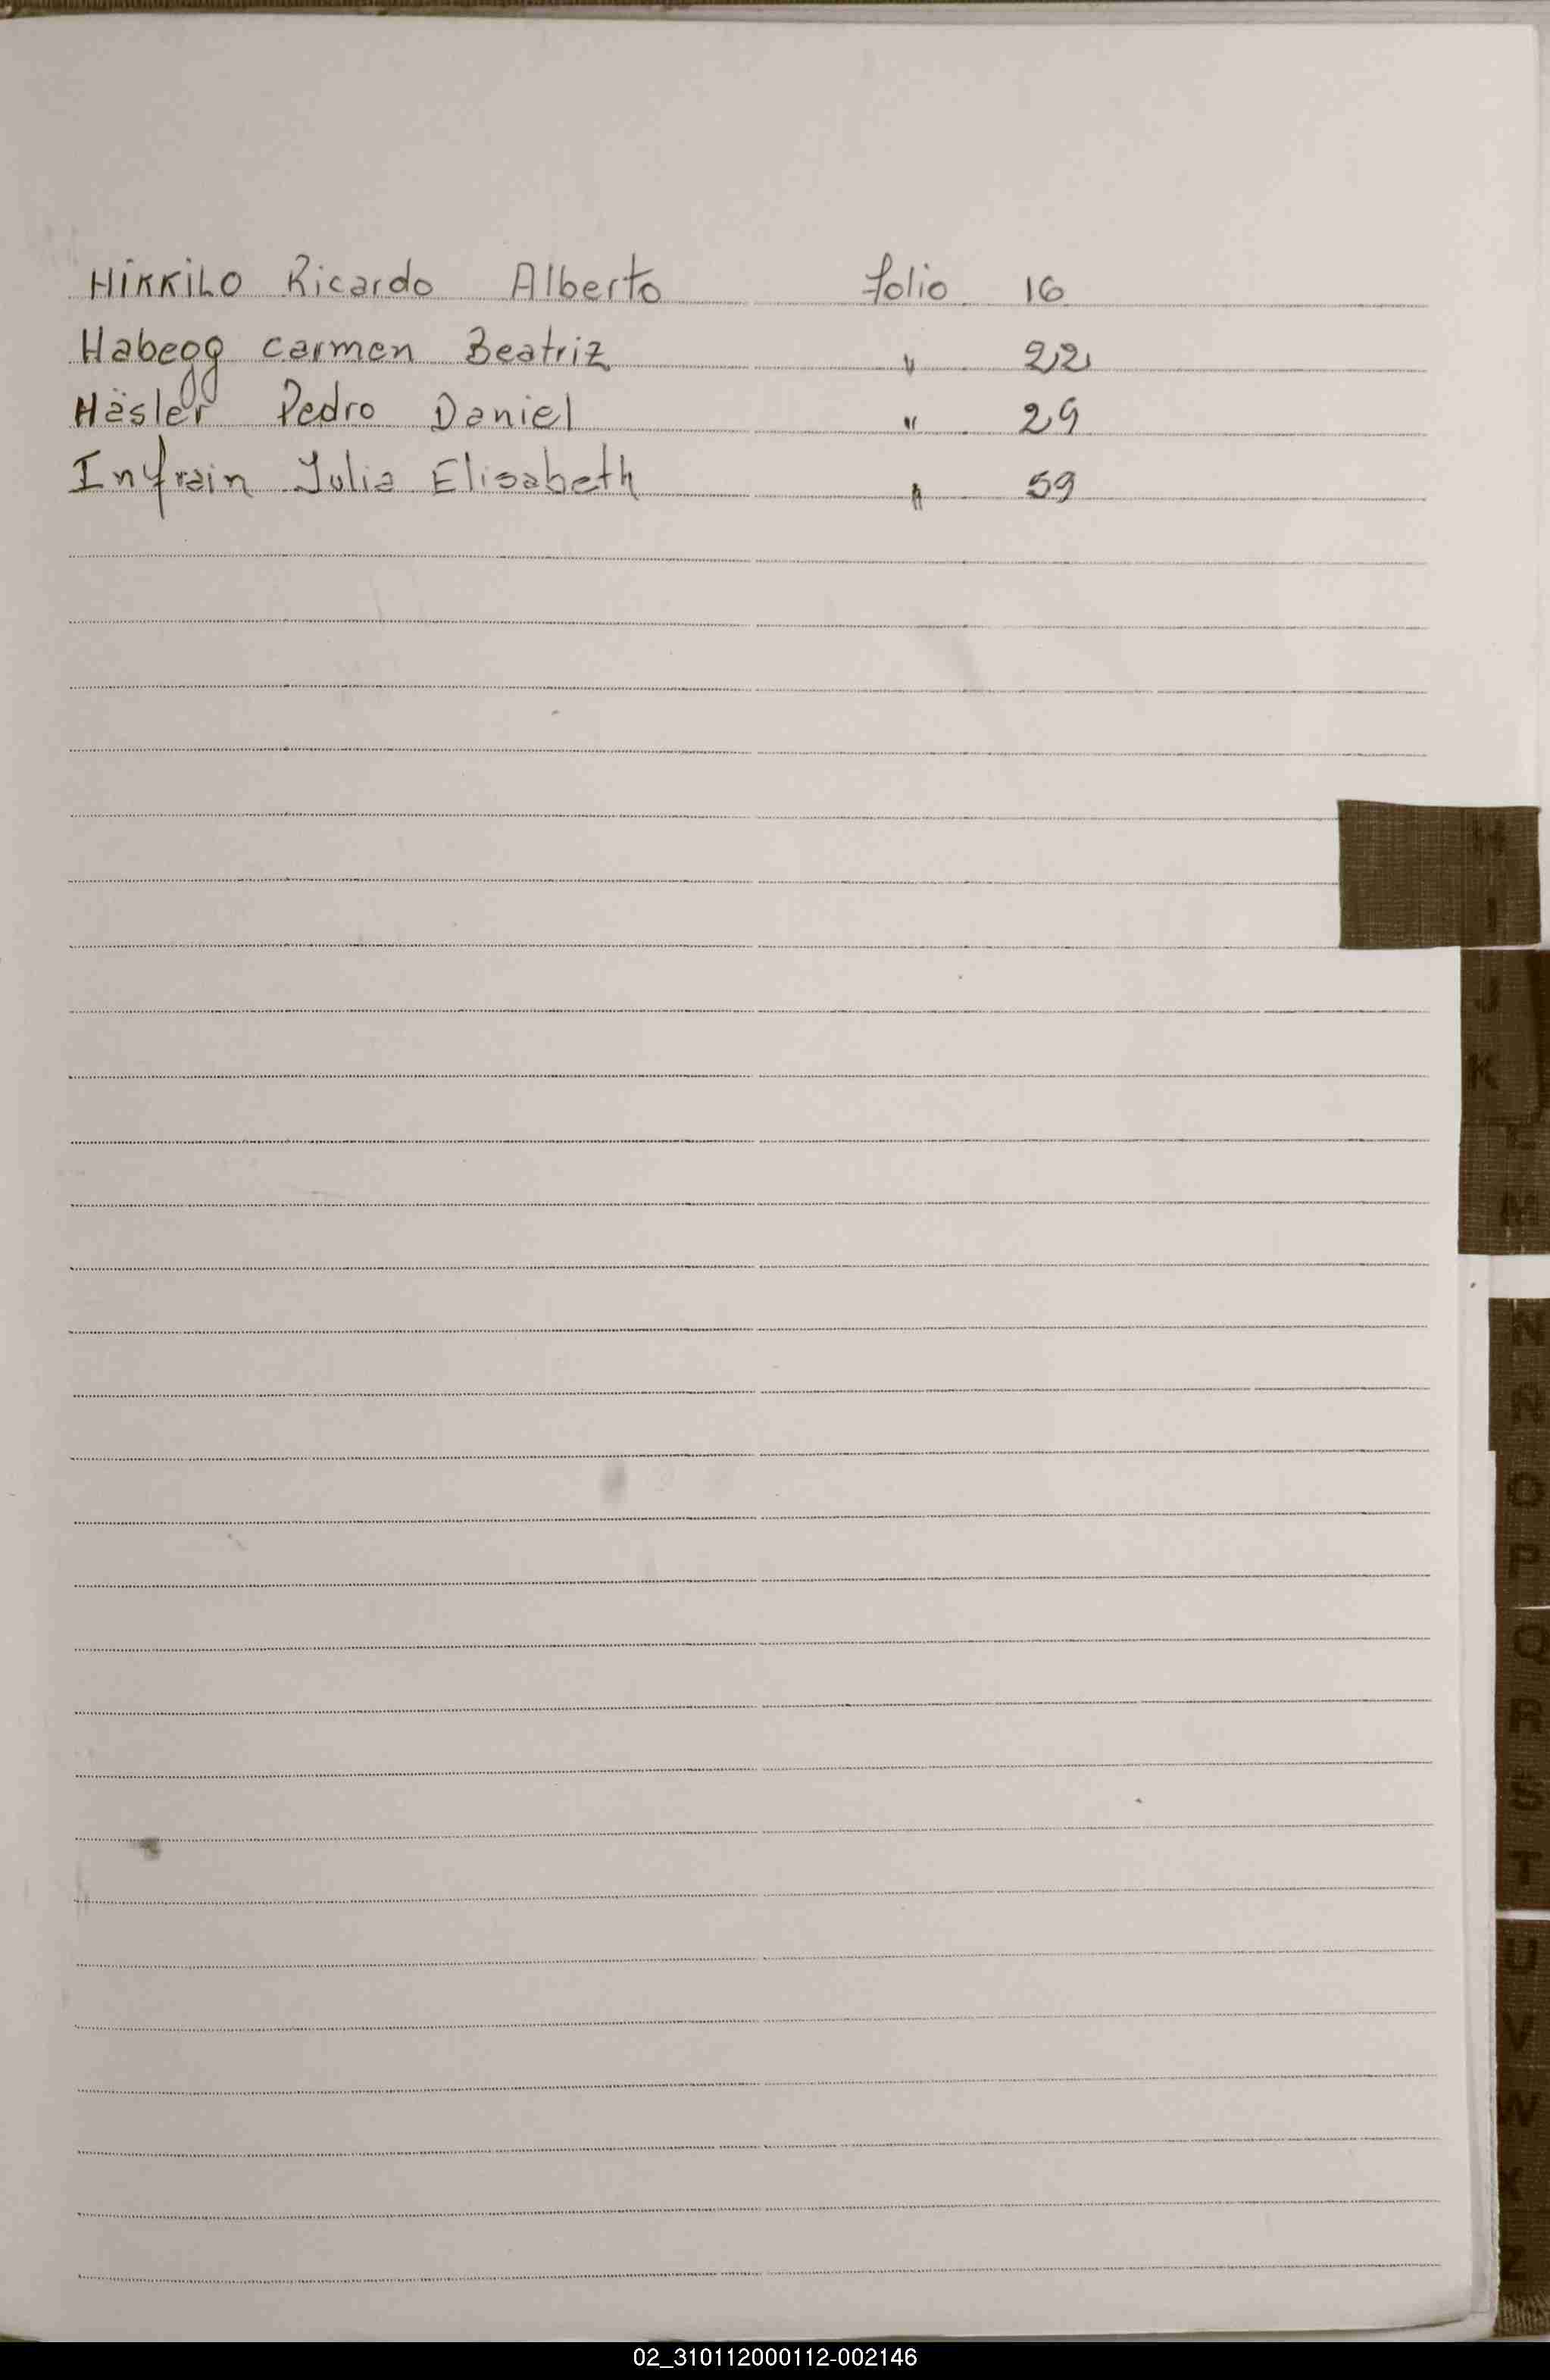 HiKKiLO Ricardo Alberto folio 16
Habegg Carmen Beatriz " 22
Häsler Pedro Daniel " 29
Infrain Julia Elisabeth " 59
H
I
J
K
L
M
N
Ñ
O
P
Q
R
S
T
U
V
W
X
Z
02_310112000112-002146